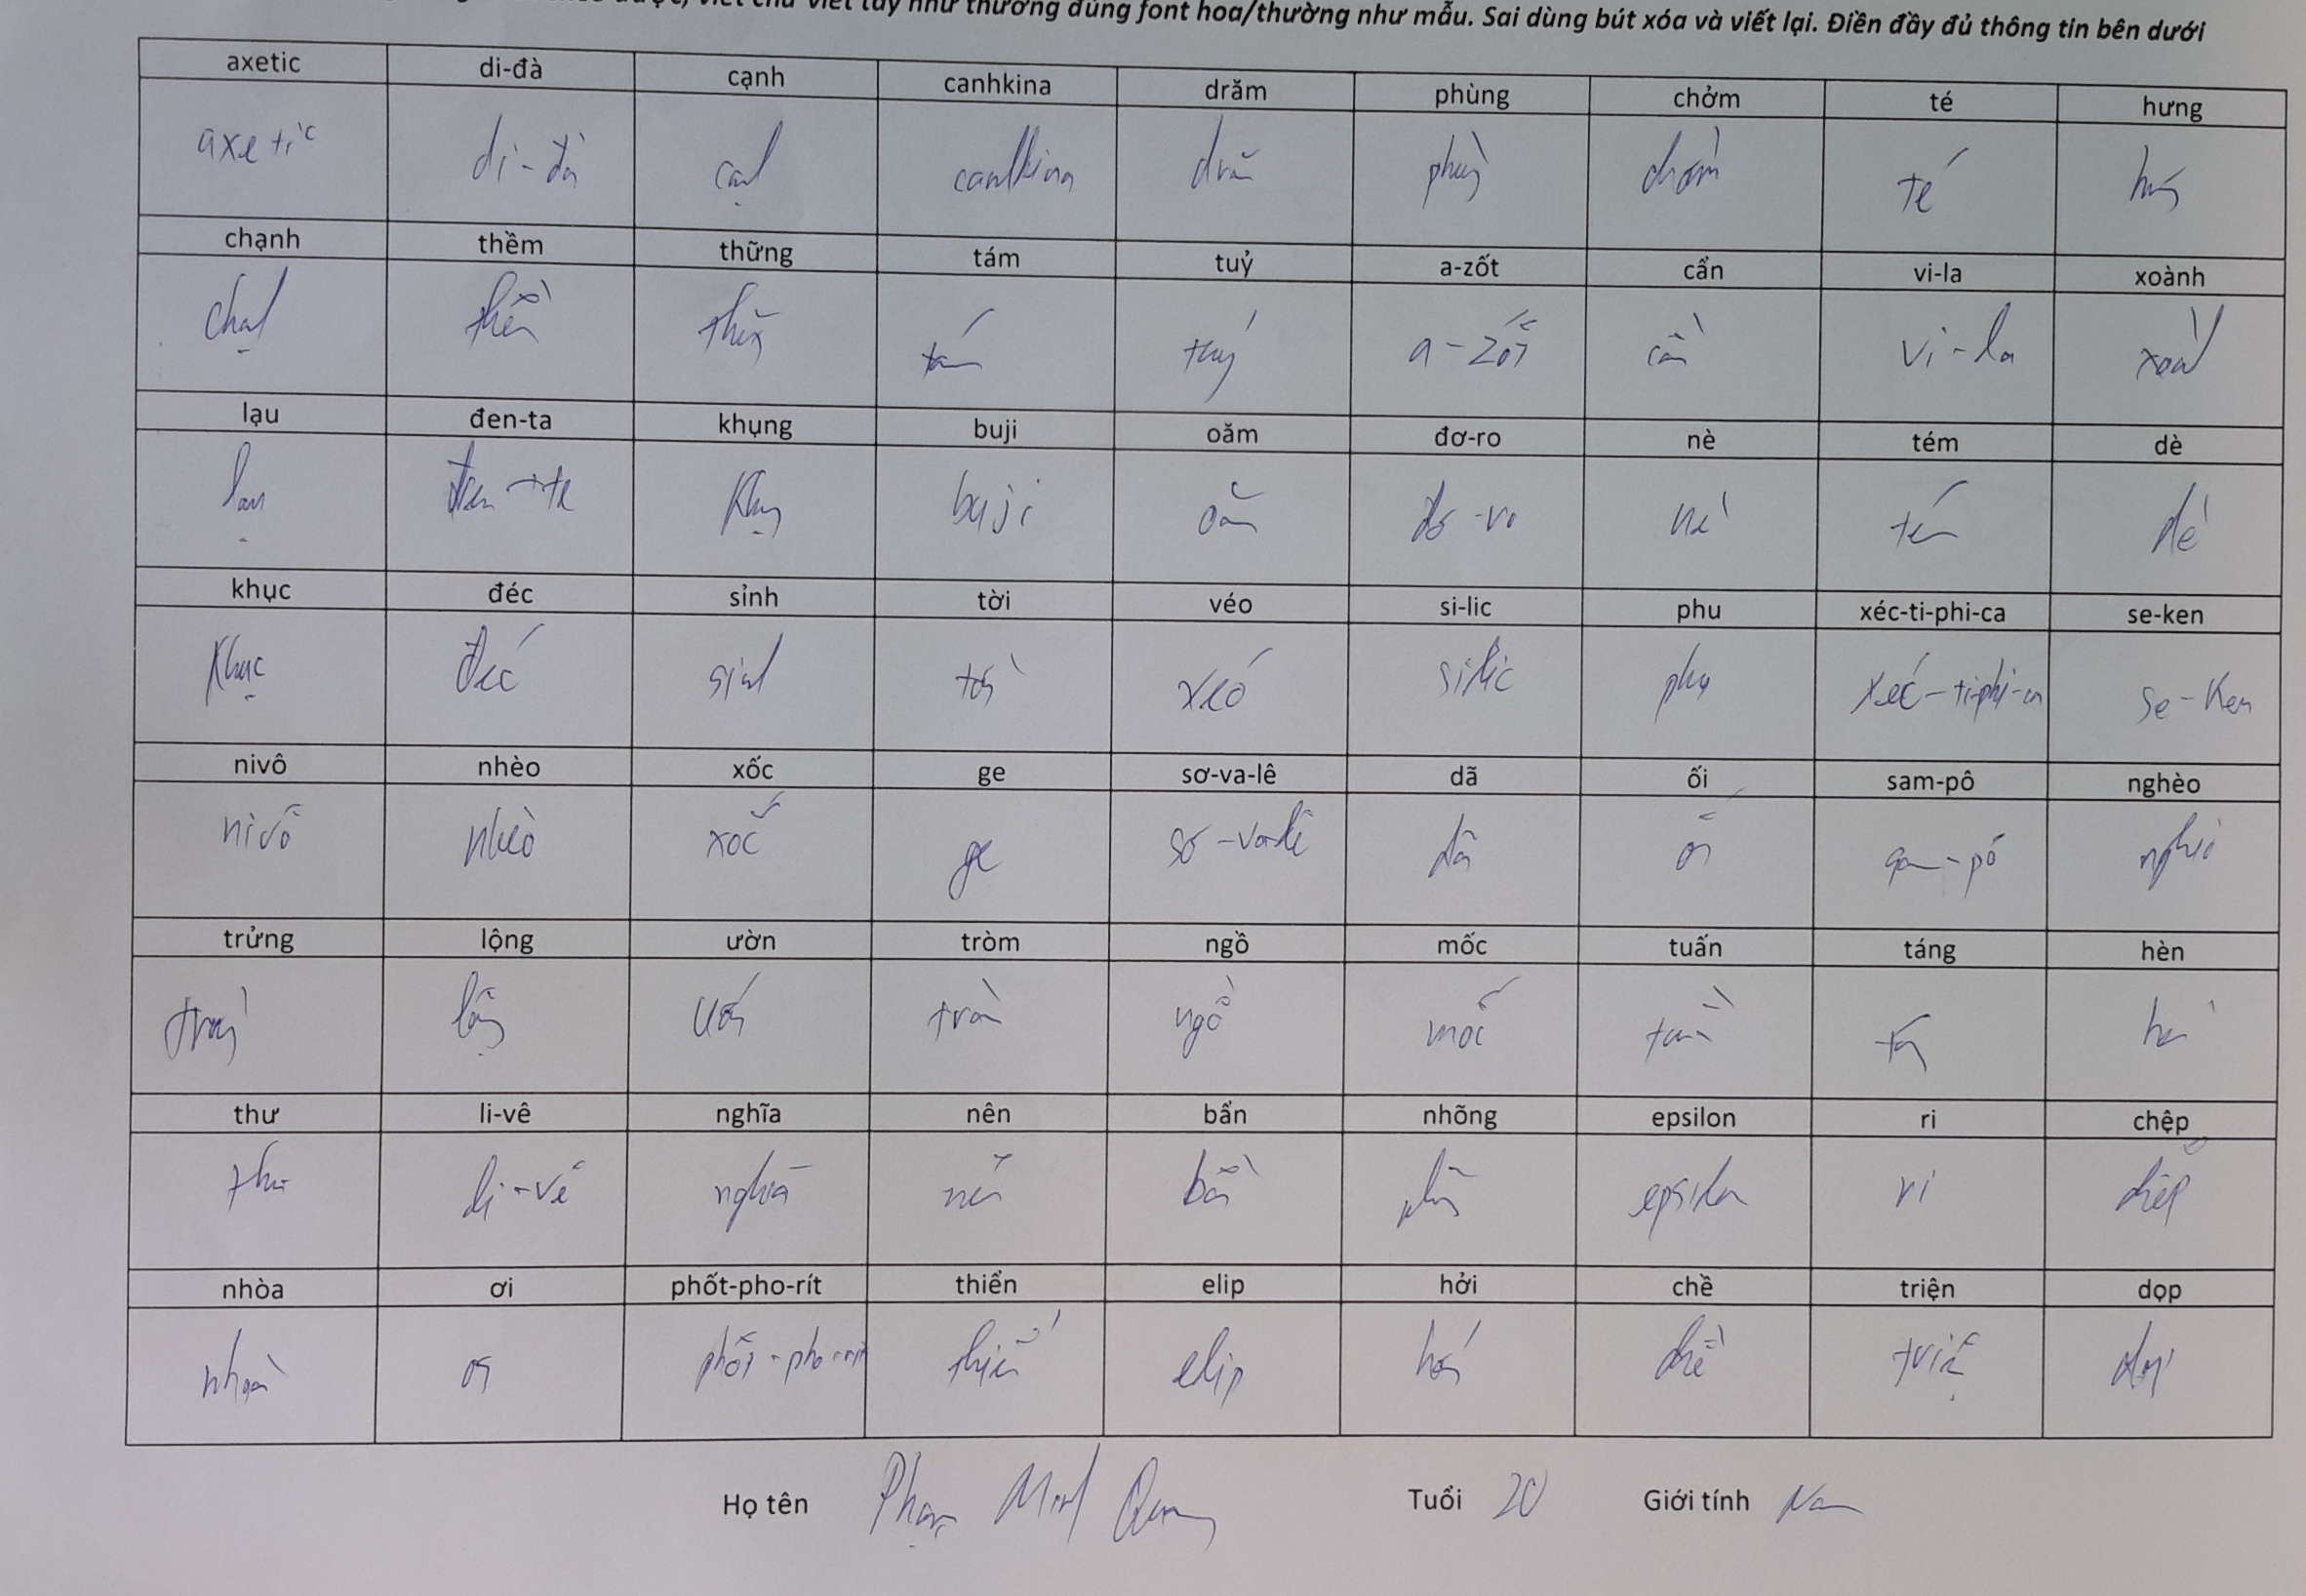 viết chữ viết tay như thường đúng font hoa/thường như mẫu. Sai dùng bút xóa và viết lại. Điền đầy đủ thông tin bên dưới
axetic di-đà cạnh canhkina drăm phùng chởm té hưng
axetic di-đà cạnh canhkina drăm phùng chởm té hưng
chạnh thềm thững tám tuỷ a-zốt cẩn vi-la xoành
chạnh thềm thững tám tuý a-zốt cẩn vi-la xoành
lạu đen-ta khụng buji oăm đơ-ro nè tém dè
lạu đen-ta khụng buji oăm đơ-ro nè tém dè
khục đéc sỉnh tời véo si-lic phu xéc-ti-phi-ca se-ken
khục đéc sinh tời xéo si-lic phu xéc-ti-phi-ca se-ken
nivô nhèo xốc ge sơ-va-lê dã ối sam-pô nghèo
nivô nhèo xốc ge sơ-va-lê dã ối sam-pô nghèo
trửng lộng ườn tròm ngồ mốc tuấn táng hèn
trửng lộng tròm ngồ mốc táng hèn
thư li-vê nghĩa nên bẩn nhõng epsilon ri chệp
thư li-vê nghĩa nên bẩn nhõng epsilon ri chệp
nhòa ơi phốt-pho-rít thiển elip hởi chề triện dọp
nhoà ơi phốt-pho-rít thiển elip hởi chề triện dọp
Họ tên Phạm Minh Quang Tuổi 20 Giới tính Nam